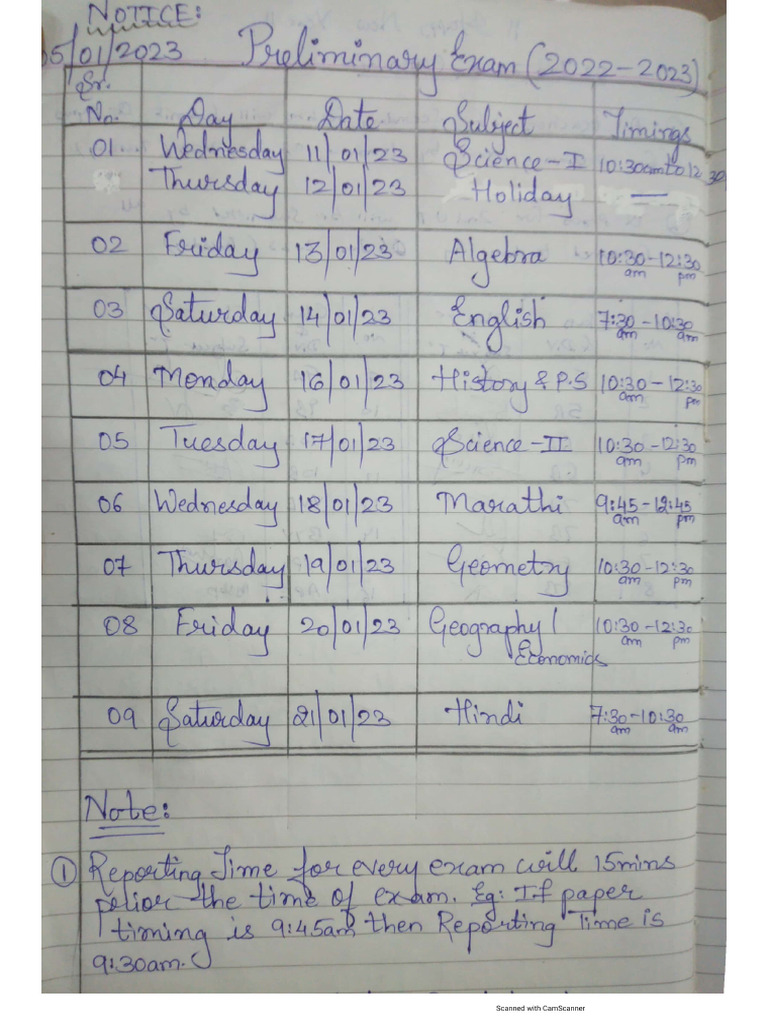 NOTICE:
05/01/2023 Preliminary Exam (2022-2023)
Sr.
No. Day Date Subject Timings
01 Wednesday 11/01/23 Science-I 10:30am to 12:30
Thursday 12/01/23 Holiday —
02 Friday 13/01/23 Algebra 10:30-12:30
am pm
03 Saturday 14/01/23 English 7:30-10:30
am am
04 Monday 16/01/23 History & P.S 10:30-12:30
am pm
05 Tuesday 17/01/23 Science-II 10:30-12:30
am pm
06 Wednesday 18/01/23 Marathi 9:45-12:45
am pm
07 Thursday 19/01/23 Geometry 10:30-12:30
am pm
08 Friday 20/01/23 Geography/ 10:30-12:30
am pm
Economics
09 Saturday 21/01/23 Hindi 7:30-10:30
am am
Note:
① Reporting Time for every exam will 15mins
prior the time of exam. Eg: If paper
timing is 9:45am then Reporting Time is
9:30am.
Scanned with CamScanner